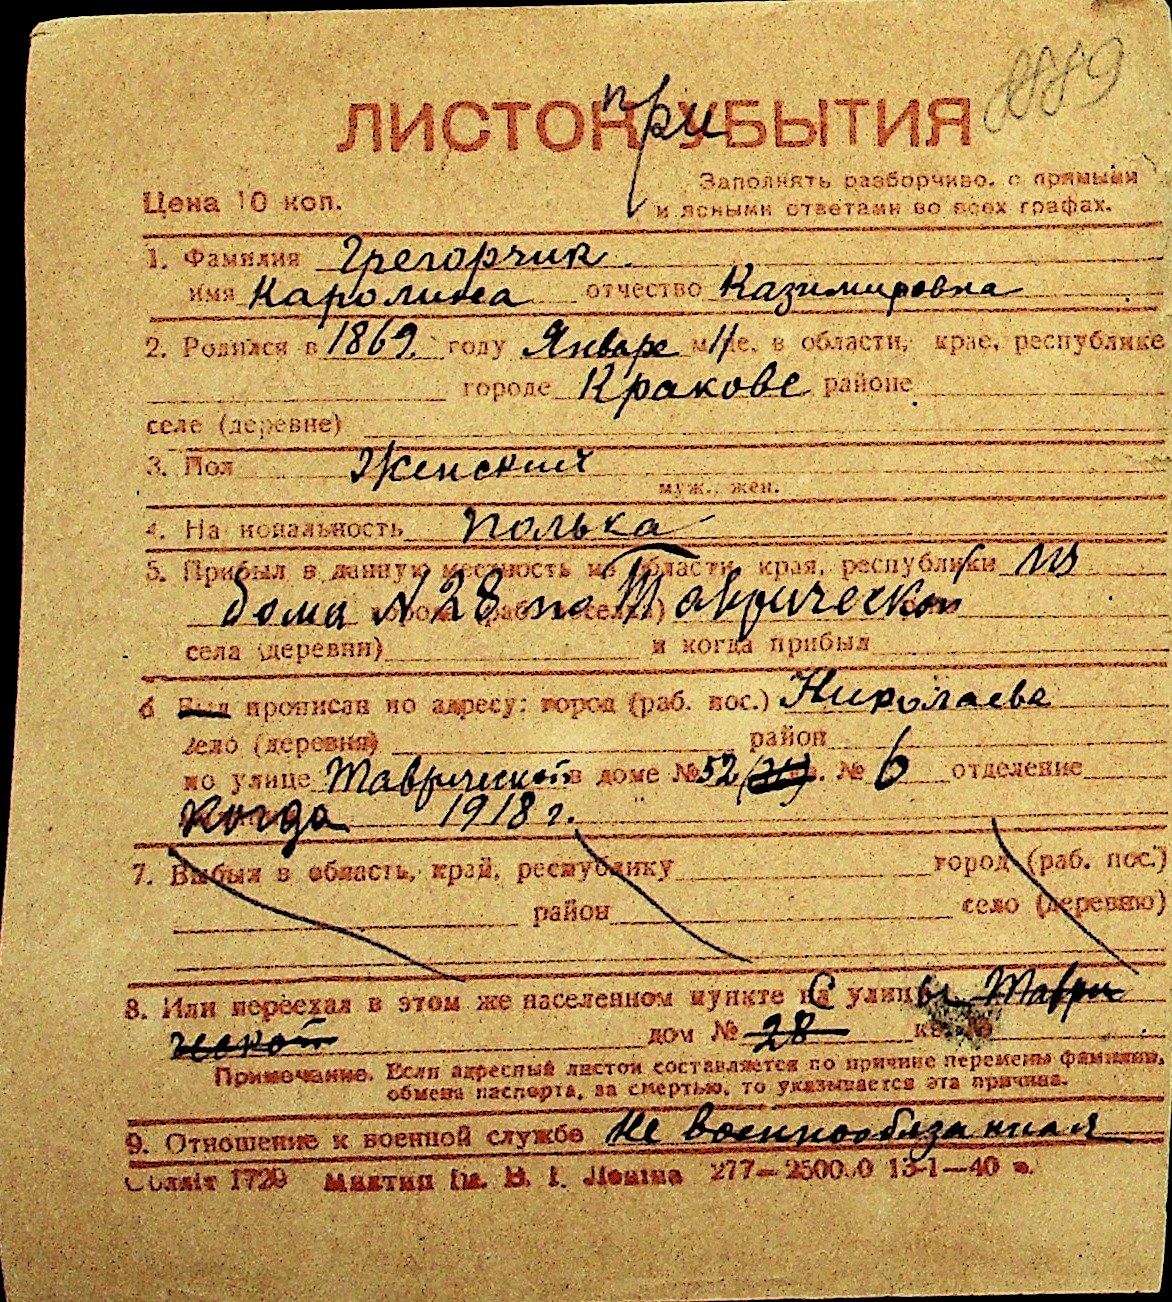 8889
ЛИСТОК при УБЫТИЯ
Заполнять разборчиво, с прямыми
Цена 10 коп.
и ясными ответами во всех графах.
1. Фамилия Грегорчик
имя Каролина отчество Казимировна
2. Родился в 1869 году Январе 11 м-це, в области, крае, республике
городе Кракове районе
селе (деревне)
3. Пол Женский
муж., жен.
4. Национальность полька
5. Прибыл в данную местность из области, края, республики из
дома №28 по Таврической
села (деревни) и когда прибыл
6 Был прописан по адресу: город (раб. пос.) Николаеве
село (деревня) район
по улице Таврической в доме № 52 кв. № 6 отделение
Когда 1918 г.
7. Выбыл в область, край, республику город (раб. пос.)
район село (деревню)
8. Или переехал в этом же населенном пункте с улицы Таври
ческой дом № 28 кв. №
Примечание. Если адресный листок составляется по причине перемены фамилии,
обмена паспорта, за смертью, то указывается эта причина.
9. Отношение к военной службе не военнообязанная
Облліт 1729 Миктип ім. В. І. Леніна 277—250000 13-1—40